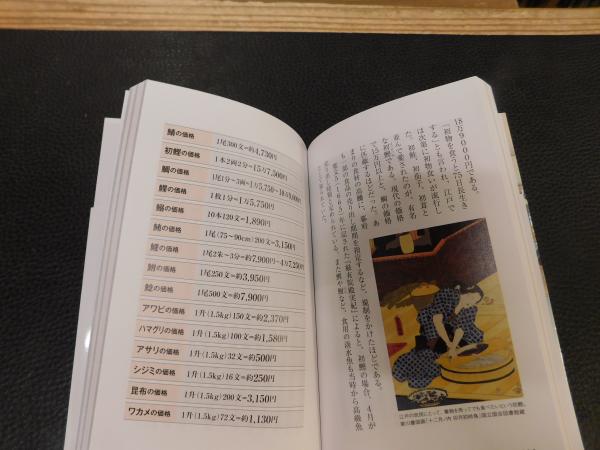 鯖の価格 1尾300文=約4,730円
初鰹の価格 1本2両2分=15万7,500円
鯛の価格 1尾1分〜3両=1万5,750〜18万9,000円
鰹の価格 1枚1分=1万5,750円
鰯の価格 10本120文=1,890円
鰆の価格 1尾(75〜90cm)200文=3,150円
鯉の価格 1尾2朱〜3分=約7,900円〜4万7,250円
鮒の価格 1尾250文=約3,950円
鯰の価格 1尾500文=約7,900円
アワビの価格 1升(1.5kg)150文=約2,370円
ハマグリの価格 1升(1.5kg)100文=約1,580円
アサリの価格 1升(1.5kg)32文=約500円
シジミの価格 1升(1.5kg)16文=約250円
昆布の価格 1升(1.5kg)200文=3,150円
ワカメの価格 1升(1.5kg)72文=約1,130円
18万9000円である。
「初物を食うと75日長生き
する」とも言われ、江戸で
は次第に初物食いが流行し
た。初鮭、初茄子、初茸と
並んで愛されたのが、有名
な初鰹である。現代の価格
で15万円以上と、鯛の価格
に匹敵するほどだった。あ
まりの食材の高騰に、幕府
も一部の食品の売り出し期間を指定するなど、規制をかけたほどである。
に記された『厳有院殿実紀』によると、初鰹の場合、4月が
また鯉や鮒など、食用の淡水魚も当時から高級魚
江戸の庶民にとって、着物を売ってでも食べたいという初鰹。
国立国会図書館蔵